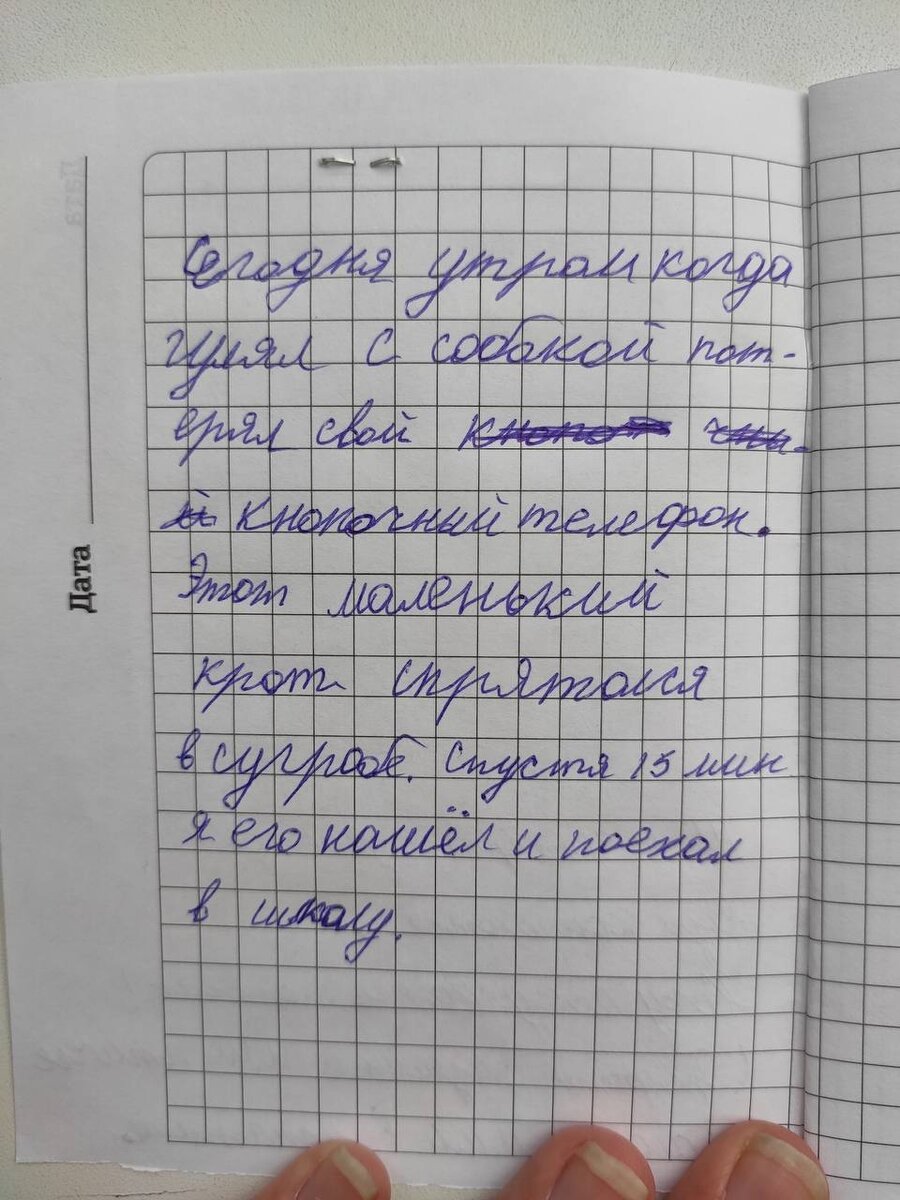 Дата
Сегодня утром когда
гулял с собакой пот-
ерял свой
кнопочный телефон.
Этот маленький
крот спрятался
в сугробе. Спустя 15 мин
я его нашёл и поехал
в школу.